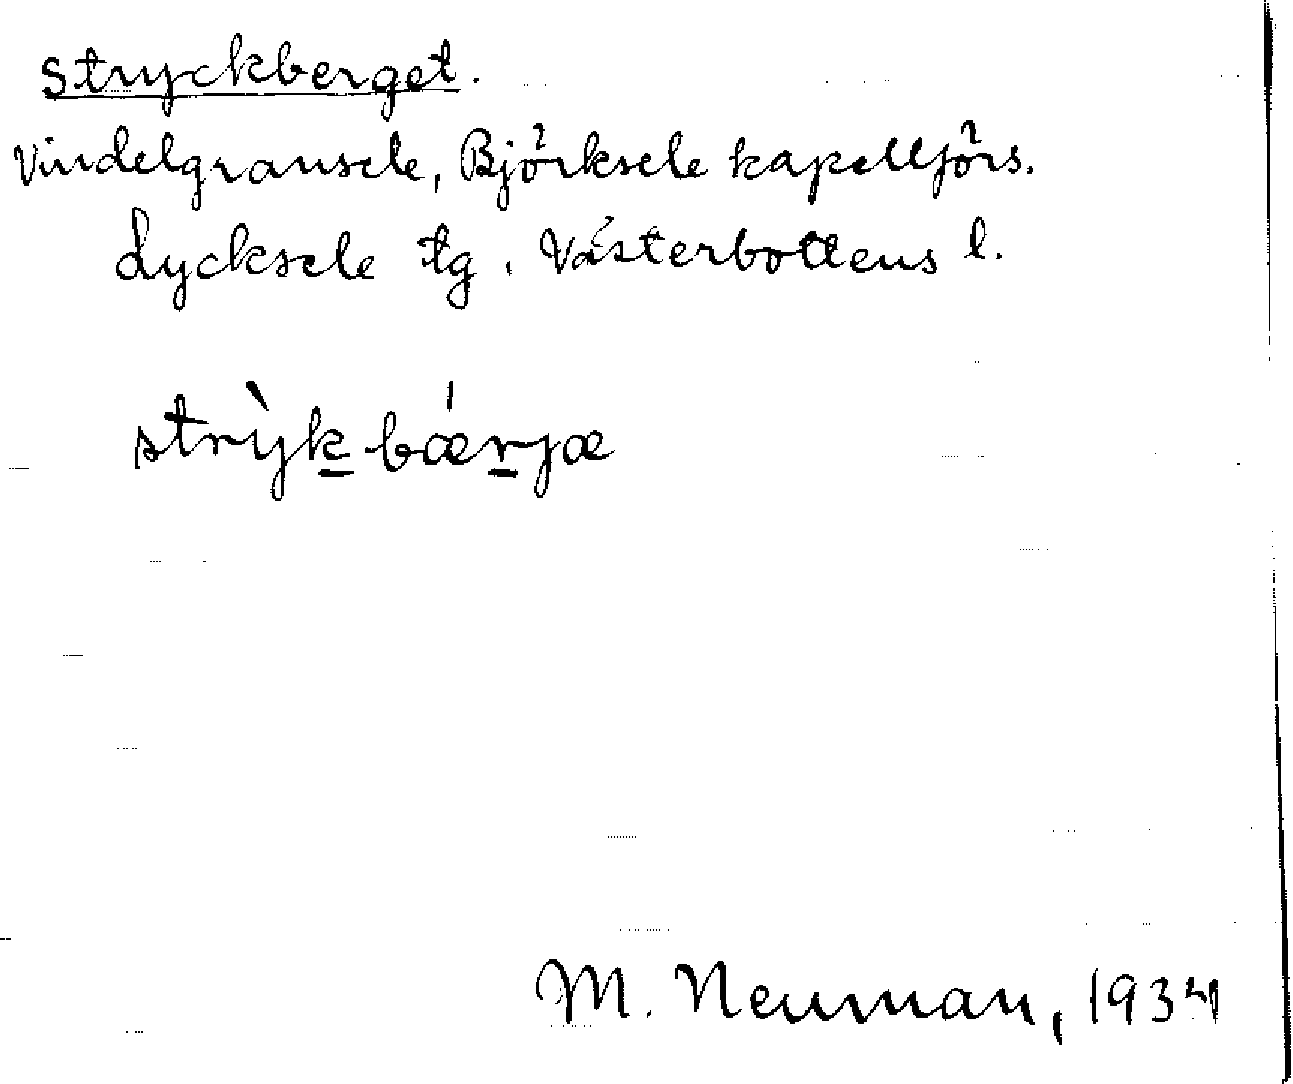 Stryckberget.
Vindelgransele, Björksele kapellförs.
Lycksele tg. Västerbottens l.
strỳk̲bǽr̲jæ
M. Neuman, 1934